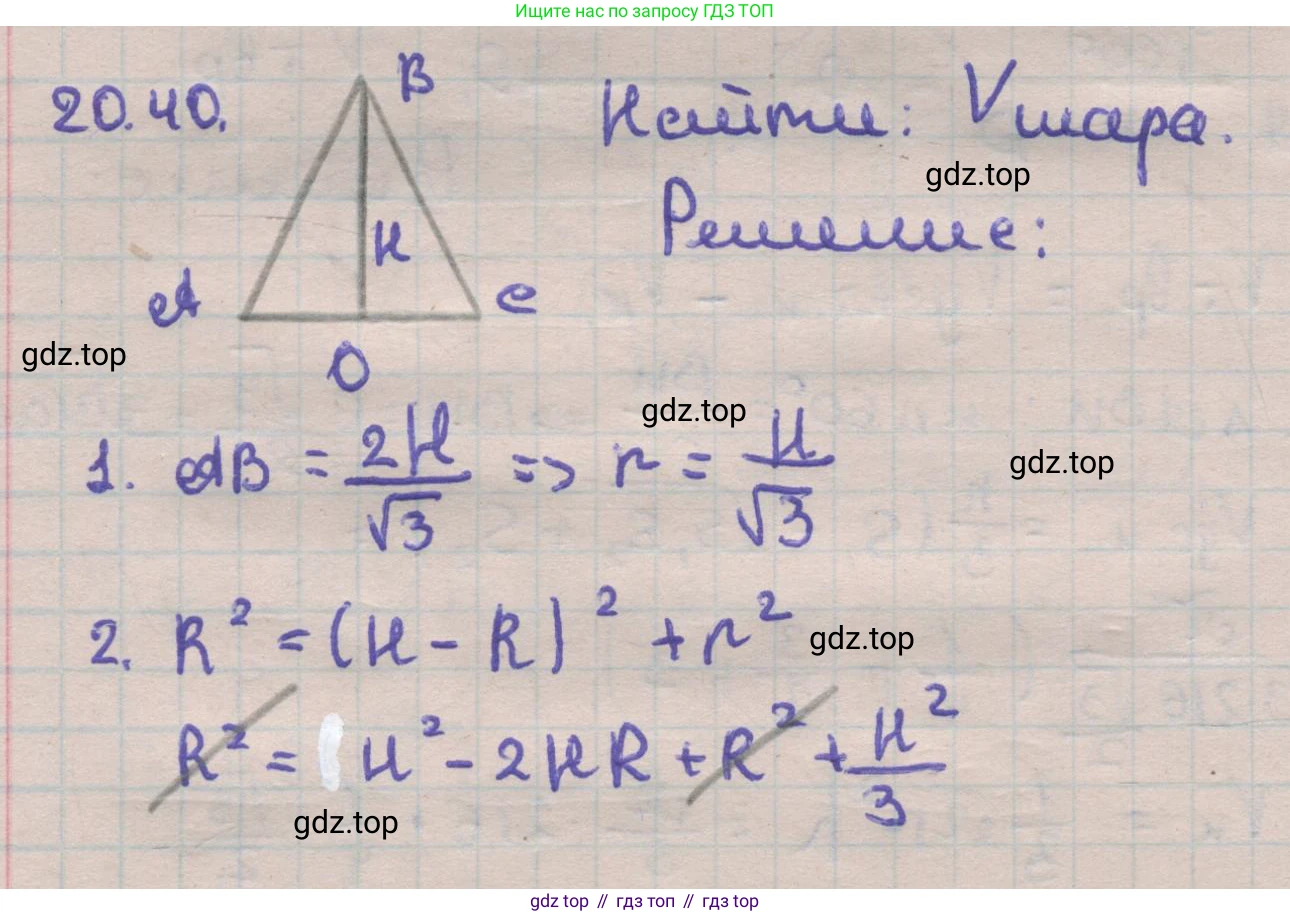 Ищите нас по запросу ГДЗ ТОП
20.40.
B
Найти: Vшара.
gdz.top
Решение:
H
A
C
gdz.top
O
gdz.top
1. AB = 2H/√3 => r = H/√3
gdz.top
2. R² = (H - R)² + r²
gdz.top
R² = H² - 2HR + R² + H²/3
gdz.top
gdz top // гдз топ // gdz top